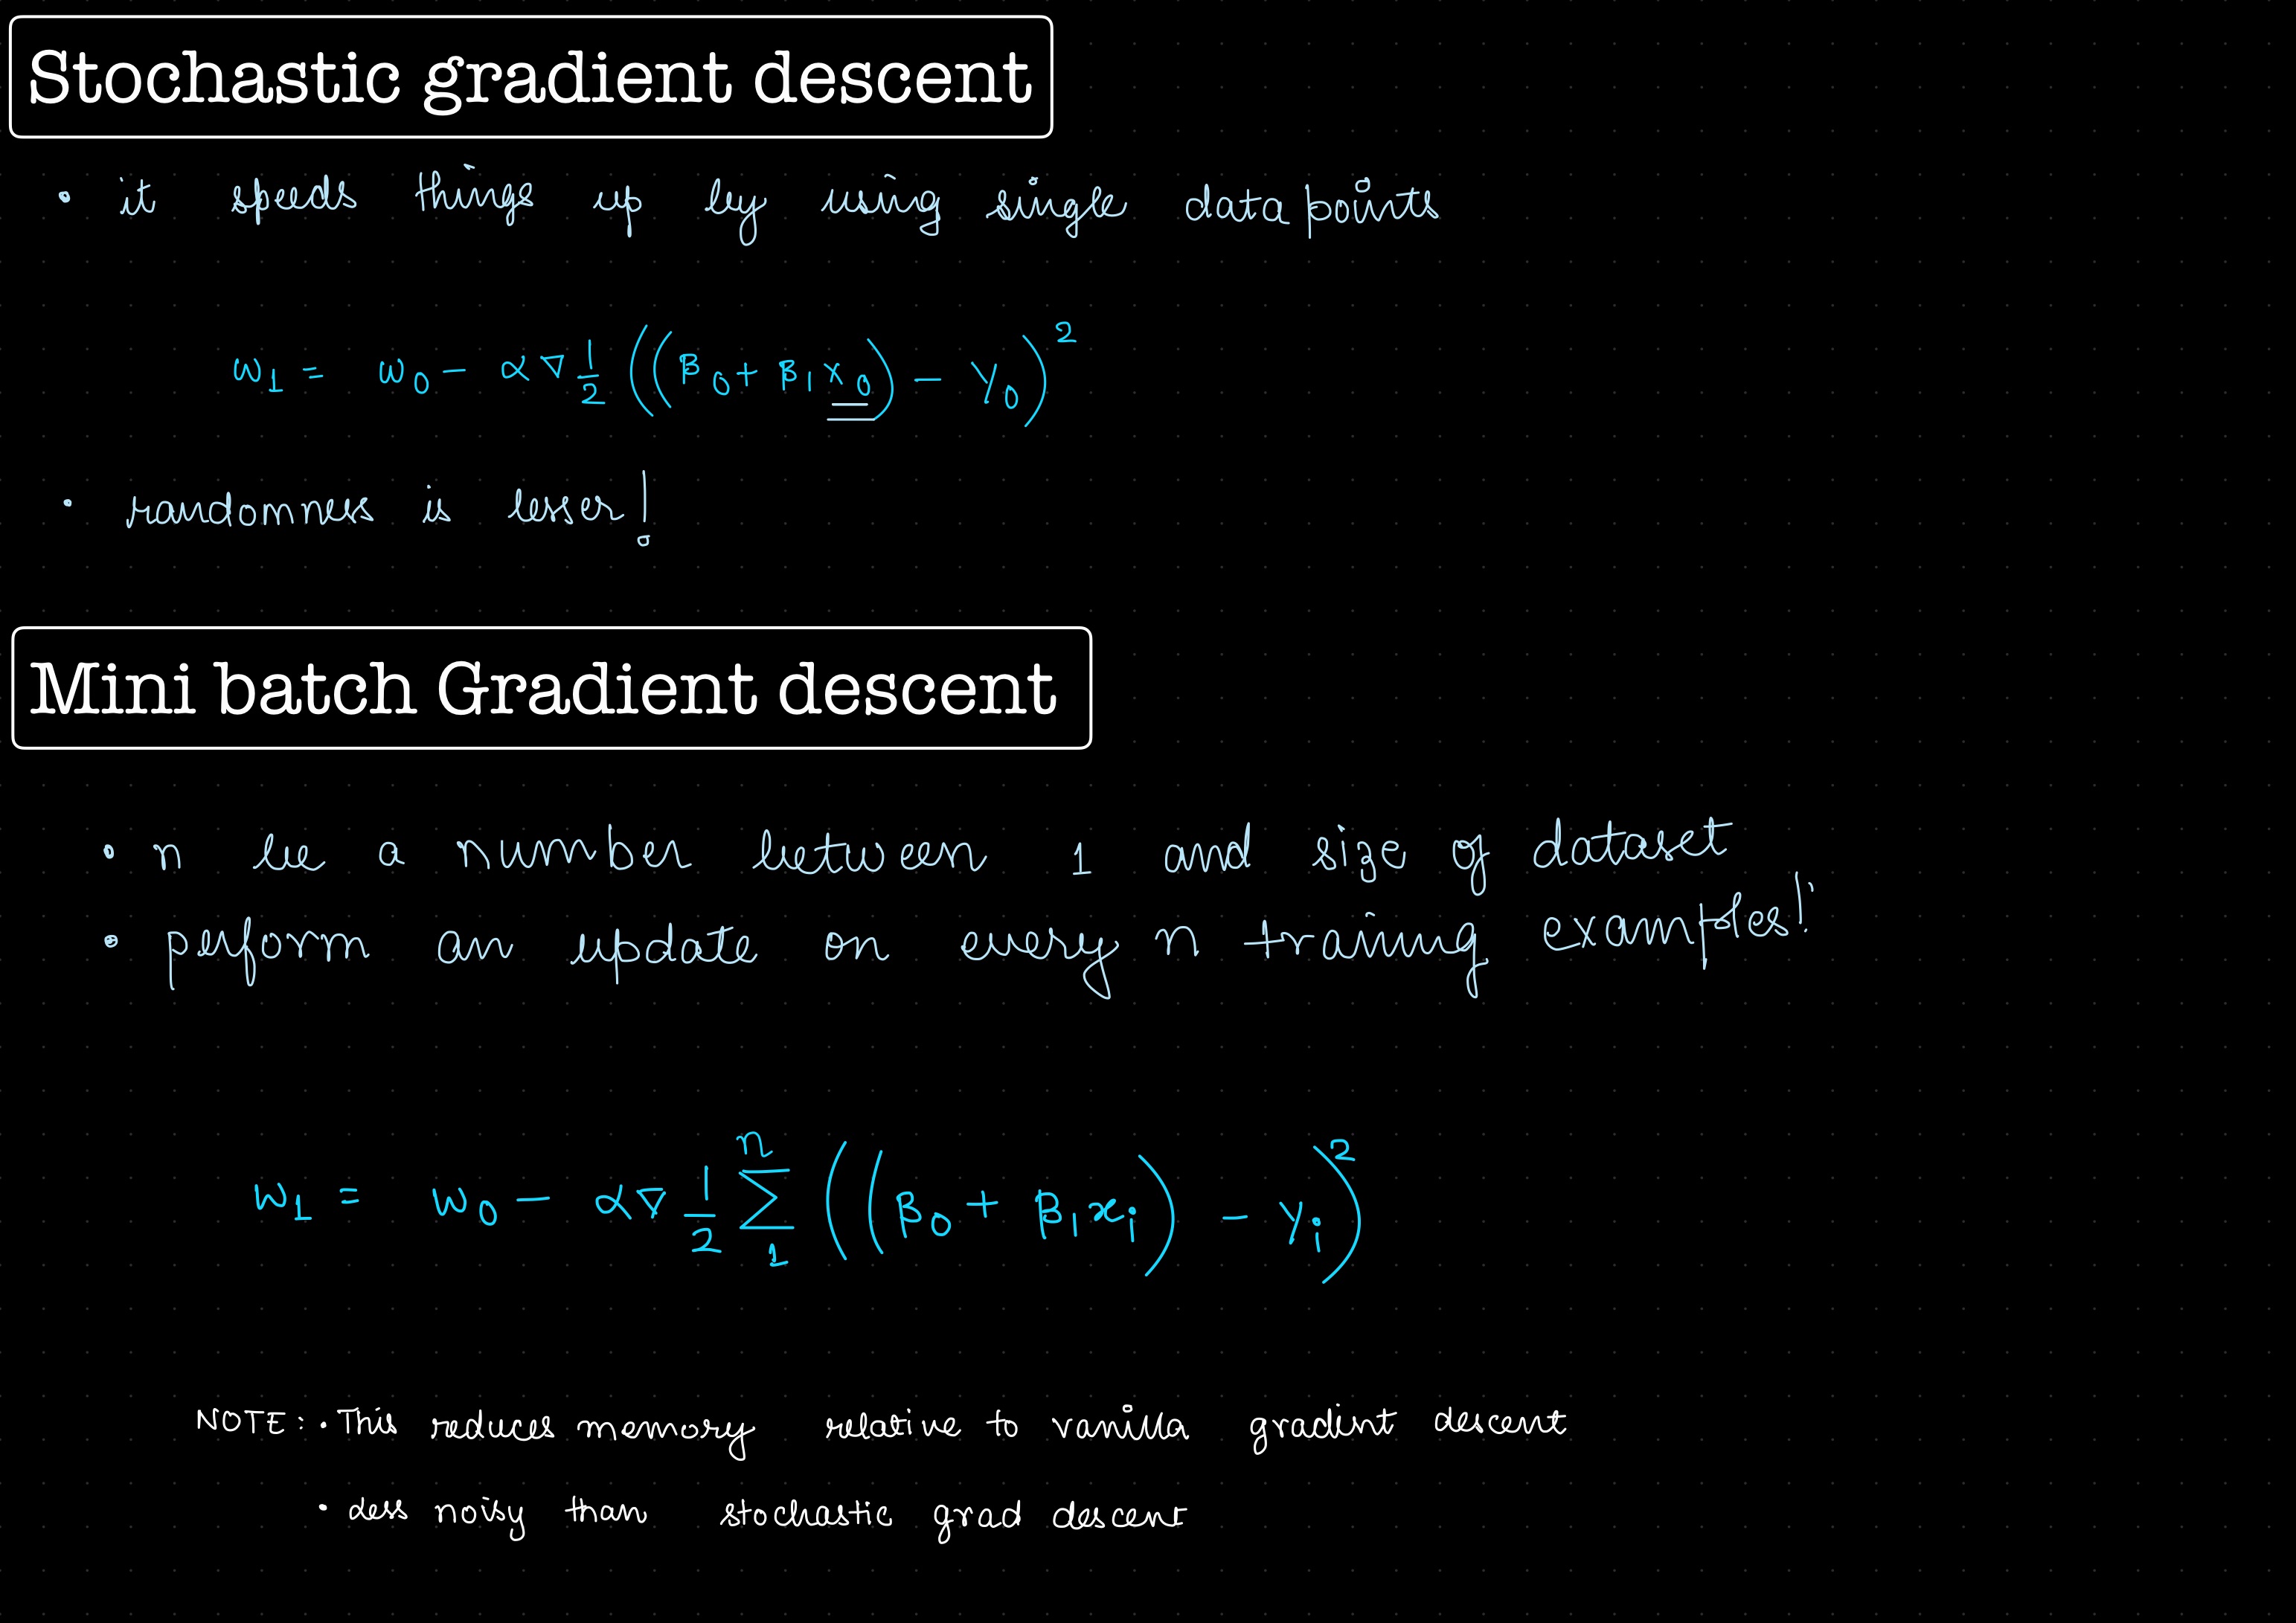 Stochastic gradient descent
• it speeds things up by using single data points
ω₁ = ω₀ - α∇ 1/2 ((β₀ + β₁x₀) - y₀)²
• randomness is lesser!
Mini batch Gradient descent
• n be a number between 1 and size of dataset
• perform an update on every n training examples!
ω₁ = ω₀ - α∇ 1/2 Σ₁ⁿ ((β₀ + β₁xᵢ) - yᵢ)²
NOTE: • This reduces memory relative to vanilla gradint descent
• less noisy than stochastic grad descent